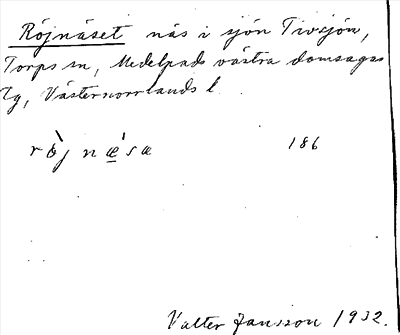 Röjnäset näs i sjön Tivsjön,
Torps sn, Medelpads västra domsagas
tg, Västernorrlands l.
rö̀jnǽ̲sæ 186
Valter Jansson 1932.